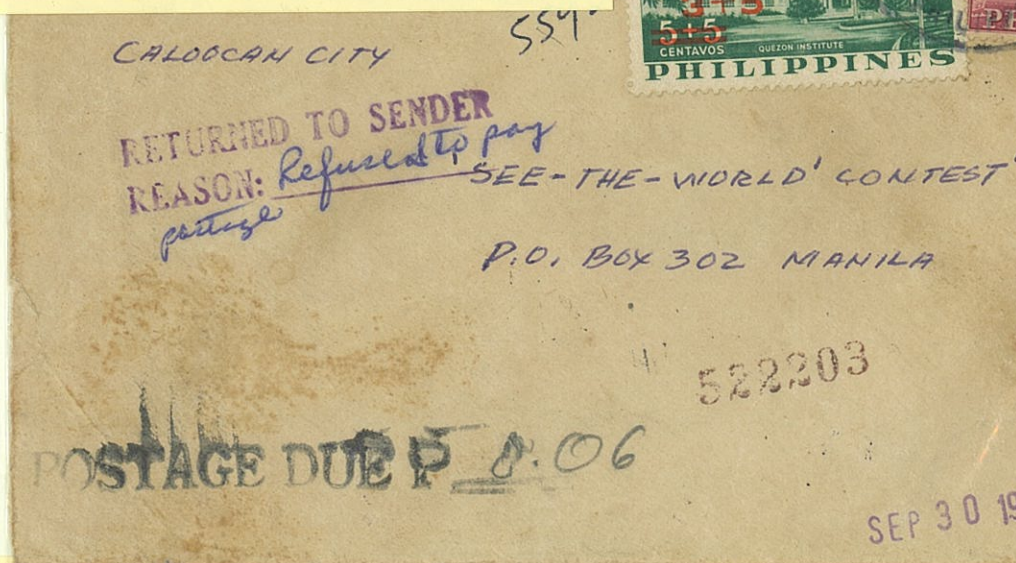 554
CALOOCAN CITY
3+5
5+5
CENTAVOS QUEZON INSTITUTE
PHILIPPINES
RETURNED TO SENDER
REASON: Refused to pay
postage
SEE-THE-WORLD' CONTEST
P.O. BOX 302 MANILA
522203
POSTAGE DUE P 0.06
SEP 30 19